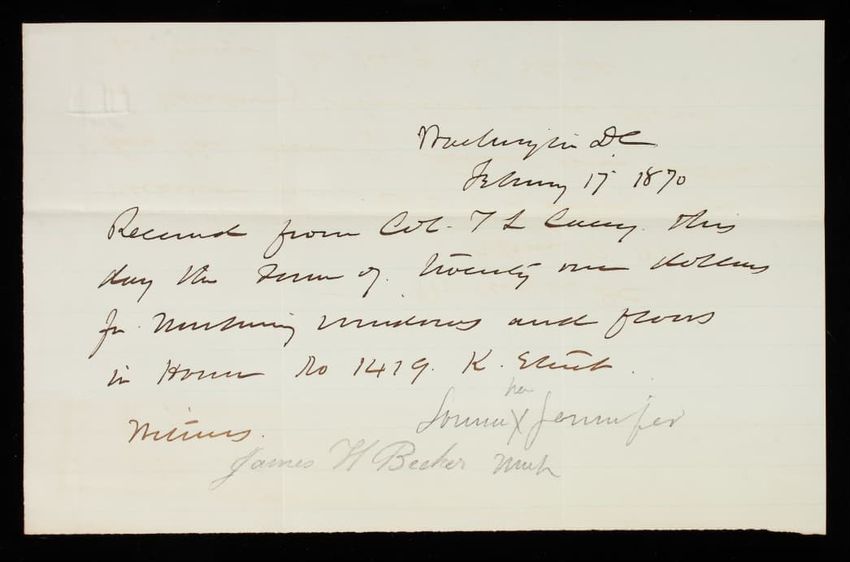 Washington DC
February 17 1870
Received from Col. T L Casey. this
day the sum of twenty one dollars
for washing windows and floors
in House No 1419. K. Street.
her
X Jennifer
Witness.
James H Becker mark